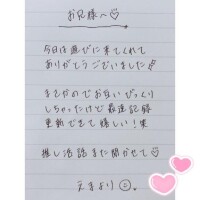 お兄様へ♡
今日は遊びに来てくれて
ありがとうございました
びっくり
しちゃったけど最速記録
更新できて嬉しい!笑
推し活話また聞かせて♡
えまより